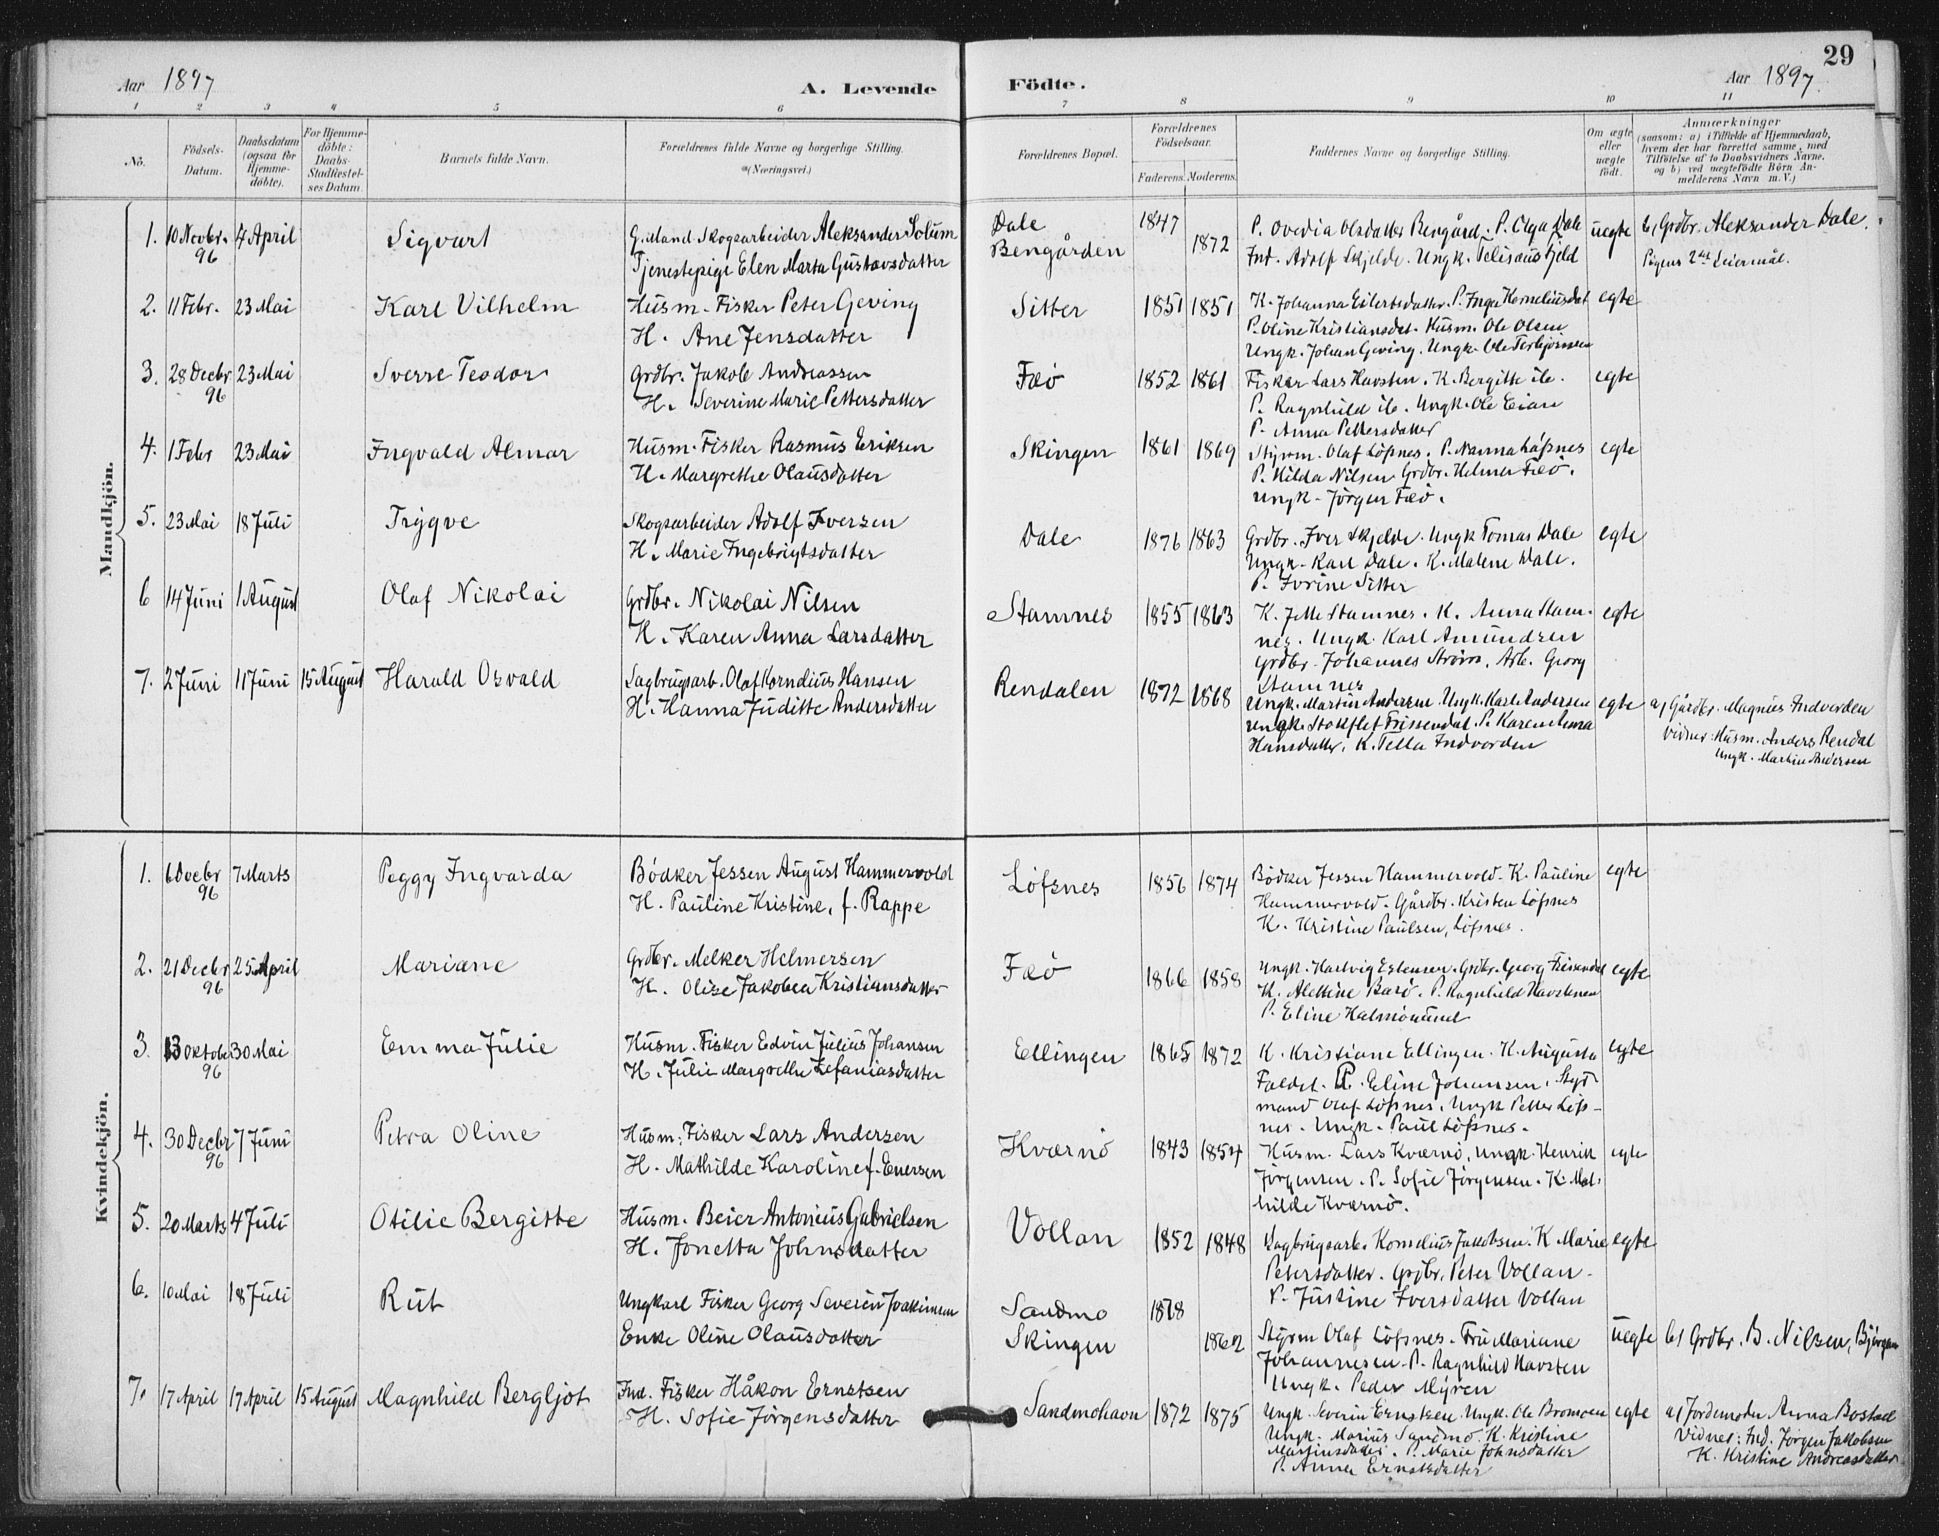 29
Aar 1897 A. Levende Födte. Aar 1897.
1 2 3 4 5 6 7 8 9 10 11
No. Födsels-Datum. Daabsdatum (ogsaa for Hjemmedöbte). For Hjemmedöbte: Daabs-Stadfæstelses Datum. Barnets fulde Navn. Forældrenes fulde Navne og borgerlige Stilling. (Næringsvei.) Forældrenes Bopæl. Forældrenes Födselsaar. Faderens. Moderens. Faddernes Navne og borgerlige Stilling. Om ægte eller uægte født. Anmærkninger (saasom: a) i Tilfælde af Hjemmedaab, hvem der har forrettet samme, med Tilföielse af to Daabsvidners Navne. og b) ved uægtefödte Börn Anmelderens Navn m. V.)
Mandkjön.
1. 10 Novbr. 96 4 April Sigvart G. Mand Skogsarbeider Aleksander Solum Dale 1847 P. Ovedia Olsdatter Bengård. P. Olga Dale uegte b) Grdbr. Aleksander Dale.
Tjenestepige Elen Marta Gustavsdatter Bengården 1872 Ind. Adolf Skjelde. Ungk. Pelisaus Fjeld Pigens 2det Leiermål.
2. 11 Febr. 23 Mai Karl Vilhelm Husm. Fisker Peter Geving Sitter 1851 1851 K. Johanna Eilertsdatter. P. Inga Korneliusdat egte
H. Ane Jensdatter P. Oline Kristiansdat. Husm. Ole Olsen
Ungk. Johan Geving. Ungk. Ole Torbjørnsen
3. 28 Decbr 96 23 Mai Sverre Teodor Grdbr. Jakob Andreassen Fæø 1852 1861 Fisker Lars Havsten. K. Bergitte ib. egte
H. Severine Marie Pettersdatter P. Ragnhild ib. Ungk. Ole Eian
P. Anna Pettersdatter
4. 1 Febr 23 Mai Ingvald Almar Husm. Fisker Rasmus Eriksen Skingen 1861 1869 Styrm. Olaf Løfsnes. P. Nanna Løfsnes egte
H. Margrethe Olausdatter P. Hilda Nilsen Grdbr. Helmer Fæø.
Ungk. Jørgen Fæø.
5. 23 Mai 18 Juli Trygve Skogsarbeider Adolf Iversen Dale 1876 1863 Grdbr. Iver Skjelde. Ungk Tomas Dale egte
H. Marie Ingebrigtsdatter Ungk. Karl Dale. K. Malene Dale.
P. Ivrine Sitter
6 14 Juni 1 August Olaf Nikolai Grdbr. Nikolai Nilsen Stamnes 1855 1863 K. Jette Stamnes. K. Anna Stam- egte
H. Karen Anna Larsdatter nes. Ungk. Karl Amundsen
Grdbr. Johannes Strøm. Arb. Georg
Stamnes
7. 2 Juni 11 Juni 15 August Harald Osvald Sagbrugsarb. Olaf Kornelius Hansen Rendalen 1872 1868 Ungk. Martin Andersen. Ungk. Karl Andersen egte a) Gårdbr. Magnus Indvorden
H. Hanna Juditte Andersdatter Ungk. Stoltflet Frissendal. P. Karen Anna Vidner: Husm. Anders Rendal
Hansdatter. K. Pella Indvorden Ungk. Martin Andersen
Kvindekjön.
1. 6 Decbr 96 7 Marts Peggy Ingvarda Bødker Jessen August Hammervold Løfsnes 1856 1874 Bødker Jessen Hammervold. K. Pauline egte
H. Pauline Kristine, f. Rappe Hammervold. Gårdbr. Kristen Løfsnes
K. Kristine Paulsen, Løfsnes.
2. 21 Decbr 96 25 April Mariane Grdbr. Melker Helmersen Fæø 1866 1858 Ungk. Hartvig Estensen. Grdbr. Georg Frissendal egte
H. Olise Jakobea Kristiansdatter K. Alettine Barø. P. Ragnhild Havstenen
P. Eline Kalmøisund
3. 13 Oktobr 96 30 Mai Emma Julie Husm. Fisker Edvin Julius Johansen Ellingen 1865 1872 K. Kristiane Ellingen. K. Augusta egte
H. Julie Margrethe Zefaniasdatter Faldet. P. Eline Johansen. Styr-
mand Olaf Løfsnes. Ungk Petter Løfs-
nes. Ungk. Paul Løfsnes.
4. 30 Decbr 96 7 Juni Petra Oline Husm. Fisker Lars Andersen Kværnø 1843 1854 Husm. Lars Kværnø. Ungk. Henrik egte
H. Mathilde Karoline f. Enersen Jørgensen. P. Sofie Jørgensen. K. Mat-
hilde Kværnø.
5. 20 Marts 4 Juli Otilie Bergitte Husm. Beier Antonius Gabrielsen Vollan 1852 1848 Sagbrugsarb. Kornelius Jakobsen. K Marie egte
H. Jonetta Johnsdatter Petersdatter. Grdbr. Peter Vollan.
P. Justine Iversdatter Vollan
6. 10 Mai 18 Juli Rut Ungkarl Fisker Georg Severin Joakimsen Sandmo 1878
Enke Oline Olausdatter Skingen 1862 Styrm Olaf Løfsnes. Fru Mariane uegte b) Grdbr. B. Nilsen, Bjørgan
Johannesen. P. Ragnhild Havsten
Ungk. Peder Myren
7. 17 April 17 April 15 August Magnhild Bergljot Ind. Fisker Håkon Ernstsen Sandmohavn 1872 1875 Ungk. Severin Ernstsen. Ungk. Ole Bromoen egte a) Jordemoder Anna Bostad
H. Sofie Jørgensdatter Ungk. Marius Sandmo. K. Kristine Vidner: Ind. Jørgen Jakobsen
Martinsdatter. P. Marie Johnsdatter K. Kristine Andreasdatter
P. Anna Ernstsdatter